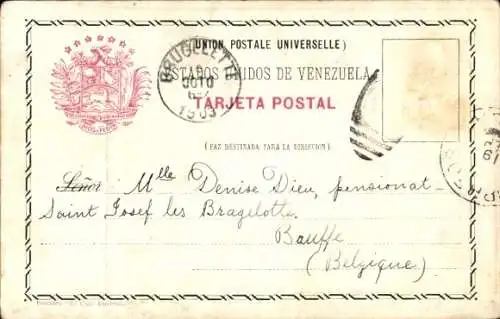 (UNION POSTALE UNIVERSELLE)
ESTADOS UNIDOS DE VENEZUELA
TARJETA POSTAL
(FAZ DESTINADA PARA LA DIRECCION)
BRUGELETTE
1903
Señor Mlle Denise Dieu, pensionat
Saint Josef les Bragelotte
Bauffe
(Belgique)